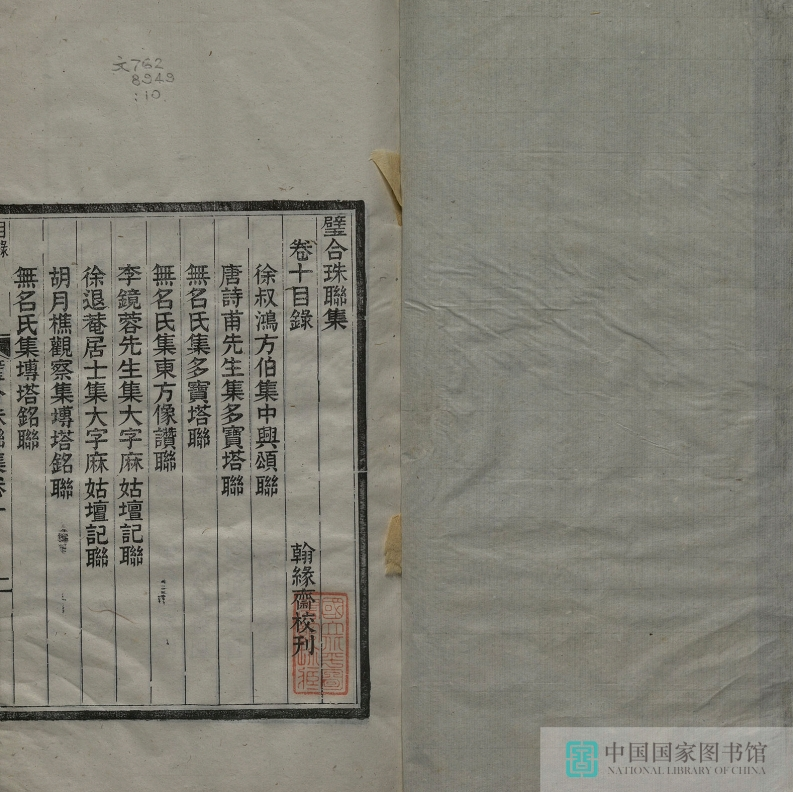 文762
8949
:10
璧合珠聯集
卷十目錄
翰緣齋校刊
徐叔鴻方伯集中興頌聯
唐詩甫先生集多寶塔聯
無名氏集多寶塔聯
無名氏集東方像讚聯
李鏡蓉先生集大字麻姑壇記聯
徐退菴居士集大字麻姑壇記聯
胡月樵觀察集塼塔銘聯
無名氏集塼塔銘聯
目錄
中国国家图书馆
NATIONAL LIBRARY OF CHINA